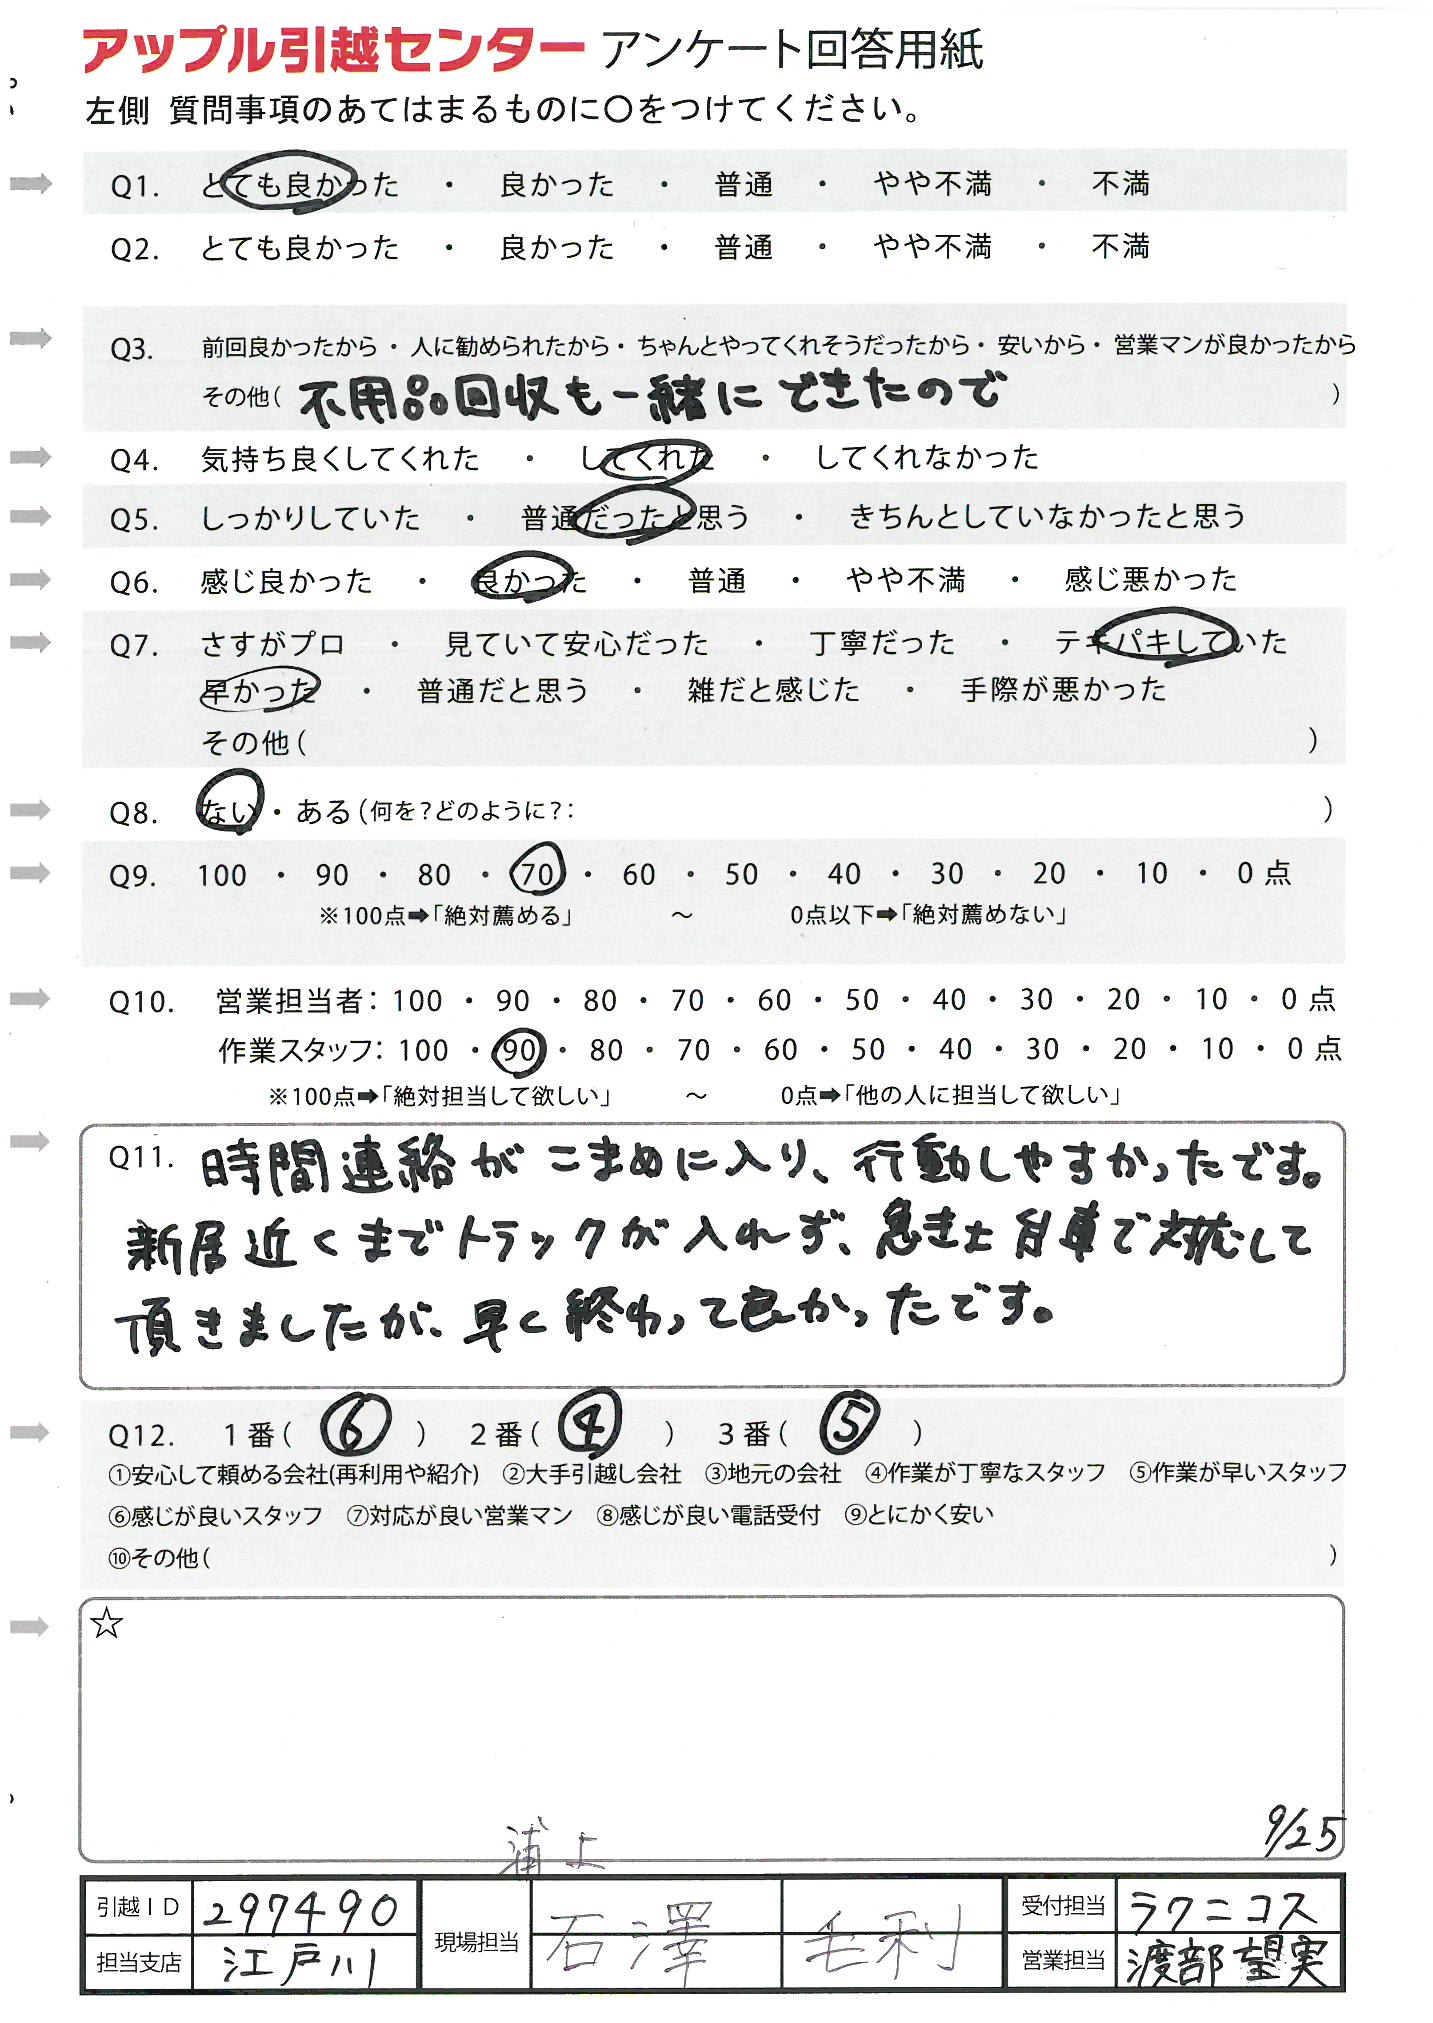 アップル引越センター アンケート回答用紙
左側 質問事項のあてはまるものに〇をつけてください。
Q1. とても良かった ・ 良かった ・ 普通 ・ やや不満 ・ 不満
Q2. とても良かった ・ 良かった ・ 普通 ・ やや不満 ・ 不満
Q3. 前回良かったから・人に勧められたから・ちゃんとやってくれそうだったから・安いから・営業マンが良かったから
その他( 不用品回収も一緒にできたので )
Q4. 気持ち良くしてくれた ・ してくれた ・ してくれなかった
Q5. しっかりしていた ・ 普通だったと思う ・ きちんとしていなかったと思う
Q6. 感じ良かった ・ 良かった ・ 普通 ・ やや不満 ・ 感じ悪かった
Q7. さすがプロ ・ 見ていて安心だった ・ 丁寧だった ・ テキパキしていた
早かった ・ 普通だと思う ・ 雑だと感じた ・ 手際が悪かった
その他( )
Q8. ない ・ ある(何を?どのように?: )
Q9. 100 ・ 90 ・ 80 ・ 70 ・ 60 ・ 50 ・ 40 ・ 30 ・ 20 ・ 10 ・ 0 点
※100点➡「絶対薦める」 〜 0点以下➡「絶対薦めない」
Q10. 営業担当者: 100 ・ 90 ・ 80 ・ 70 ・ 60 ・ 50 ・ 40 ・ 30 ・ 20 ・ 10 ・ 0 点
作業スタッフ: 100 ・ 90 ・ 80 ・ 70 ・ 60 ・ 50 ・ 40 ・ 30 ・ 20 ・ 10 ・ 0 点
※100点➡「絶対担当して欲しい」 〜 0点➡「他の人に担当して欲しい」
Q11. 時間連絡がこまめに入り、行動しやすかったです。
新居近くまでトラックが入れず、急きょ台車で対応して
頂きましたが、早く終わって良かったです。
Q12. 1番( ⑥ ) 2番( ④ ) 3番( ⑤ )
①安心して頼める会社(再利用や紹介) ②大手引越し会社 ③地元の会社 ④作業が丁寧なスタッフ ⑤作業が早いスタッフ
⑥感じが良いスタッフ ⑦対応が良い営業マン ⑧感じが良い電話受付 ⑨とにかく安い
⑩その他( )
☆
9/25
引越ID 297490 現場担当 石澤 毛利 受付担当 ラクニコス
担当支店 江戸川 営業担当 渡部 望実